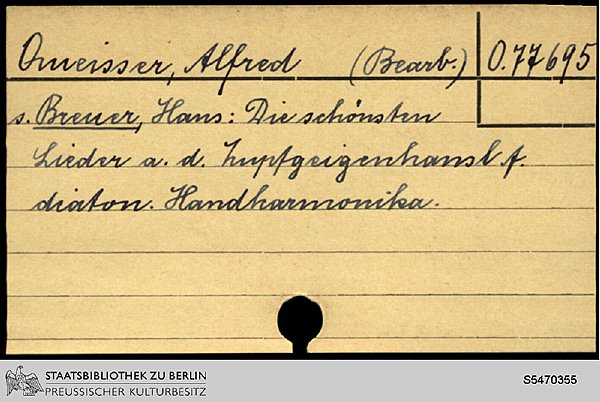 Omeisser, Alfred (Bearb.) O.77695
s. Breuer, Hans: Die schönsten
Lieder a. d. Zupfgeigenhansl f.
diaton. Handharmonika.
STAATSBIBLIOTHEK ZU BERLIN
PREUSSISCHER KULTURBESITZ
S5470355